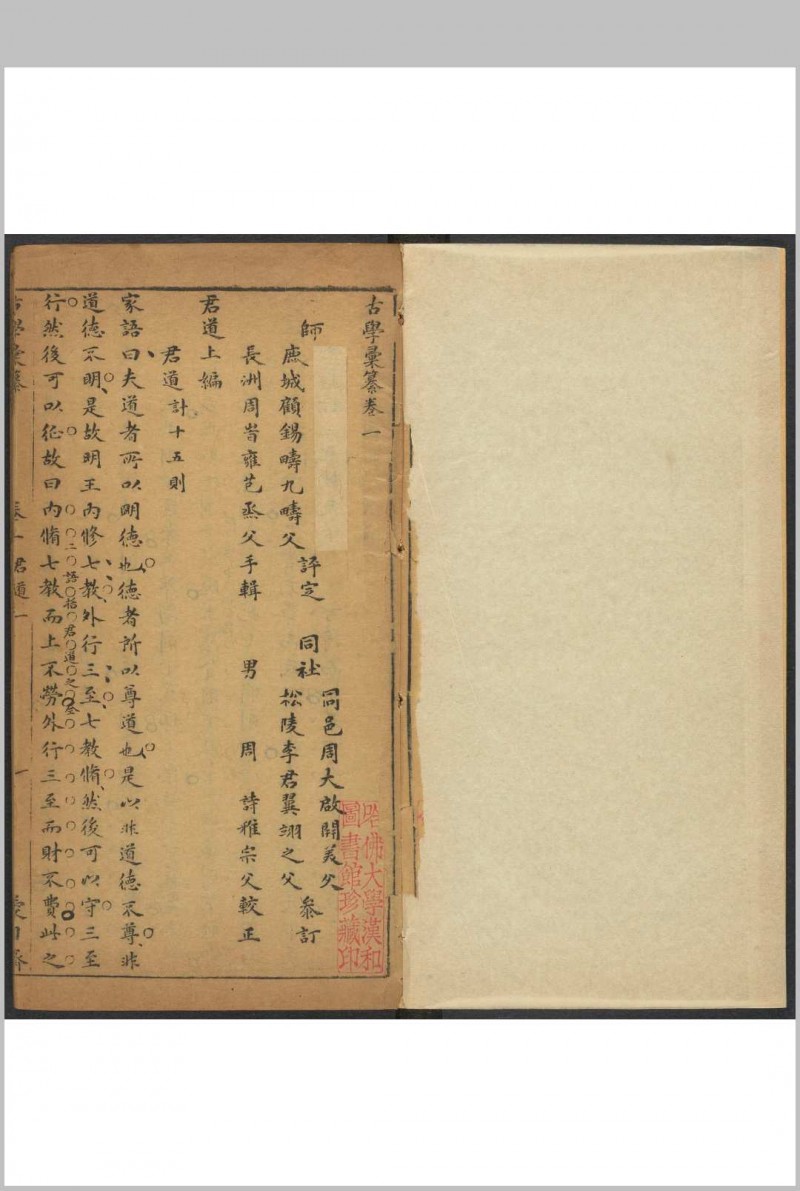 古學彙纂卷一
同邑周大啟開美父
師　　評定　同社　　參訂
鹿城顧錫疇九疇父　松陵李君翼翊之父
長洲周時雍芑烝父手輯　男　周　詩雅宗父較正
君道上編
君道計十五則
家語曰夫道者所以明德也德者所以尊道也是以非道德不尊非
道德不明是故明王內修七教外行三至七教脩然後可以守三至
二語括君道之全
行然後可以征故曰內脩七教而上不勞外行三至而財不費此之
古學彙纂　卷一君道一　一
哈佛大學漢和圖書館珍藏印